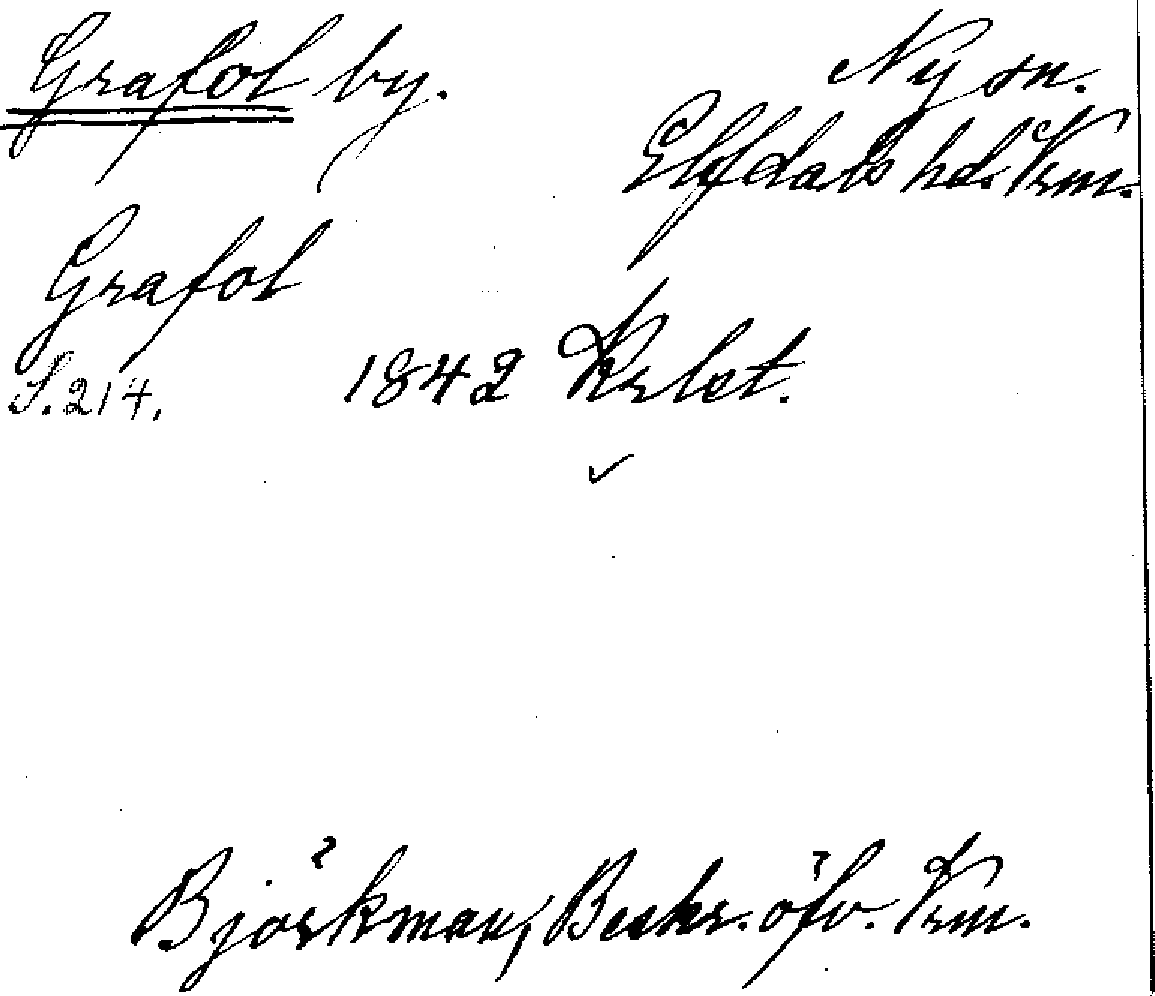 Grafol by.
Ny sn.
Elfdals hd. Vrm.
Grafol
S. 214.
1842 Krlst.
Björkman, Beskr. öfv. Vrm.